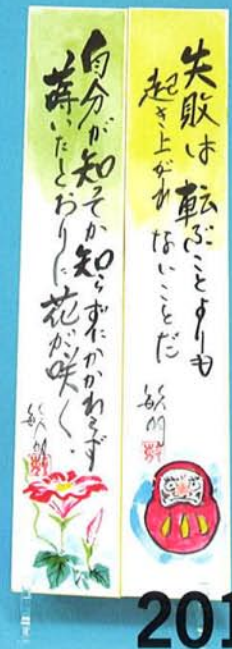 失敗は転ぶことよりも
起き上がれないことだ
敏明
自分が知ってか知らずにかかわらず
蒔いたとおりに花が咲く。
敏明
201